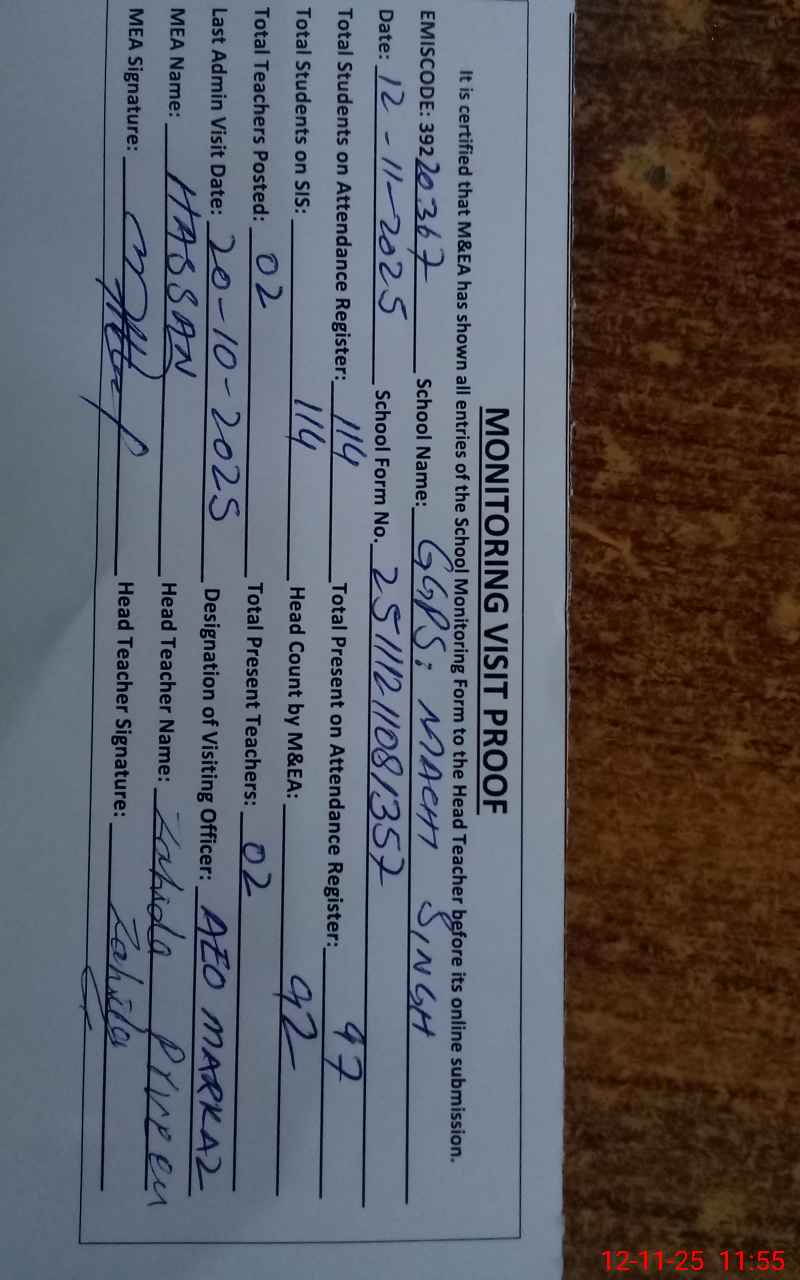 MONITORING VISIT PROOF
It is certified that M&EA has shown all entries of the School Monitoring Form to the Head Teacher before its online submission.
EMISCODE: 39220367 School Name: GGPS; MACHI SINGH
Date: 12-11-2025 School Form No. 25111211081357
Total Students on Attendance Register: 114 Total Present on Attendance Register: 97
Total Students on SIS: 114 Head Count by M&EA: 92
Total Teachers Posted: 02 Total Present Teachers: 02
Last Admin Visit Date: 20-10-2025 Designation of Visiting Officer: AEO MARKAZ
MEA Name: HASSAN Head Teacher Name: Zahida Prveen
MEA Signature: Head Teacher Signature: Zahida
12-11-25 11:55